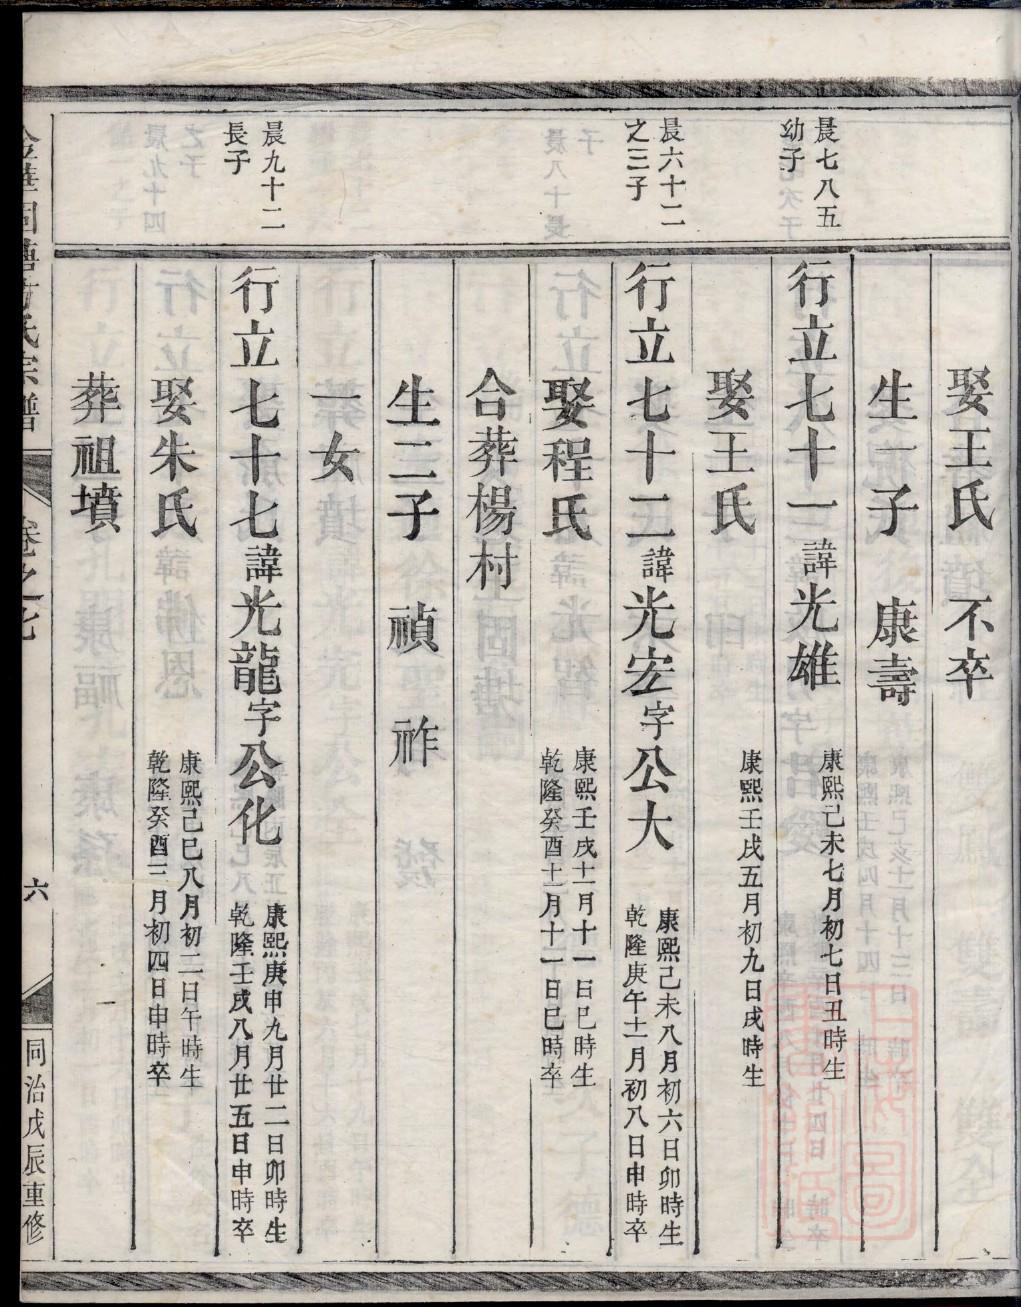 娶王氏 不卒
生一子 康壽
晨七八五
幼子
行立七十一諱光雄
康熙己未七月初七日丑時生
娶王氏
康熙壬戌五月初九日戌時生
晨六十二
之三子
行立七十二諱光宏字公大
康熙己未八月初六日卯時生
乾隆庚午十一月初八日申時卒
娶程氏
康熙壬戌十一月十一日巳時生
乾隆癸酉十一月十一日巳時卒
合葬楊村
生二子 禎 祚
一女
晨九十二
長子
行立七十七諱光龍字公化
康熙庚申九月廿二日卯時生
乾隆壬戌八月廿五日申時卒
娶朱氏
康熙己巳八月初二日午時生
乾隆癸酉三月初四日申時卒
葬祖墳
氏宗譜
卷之七
六
同治戊辰重修